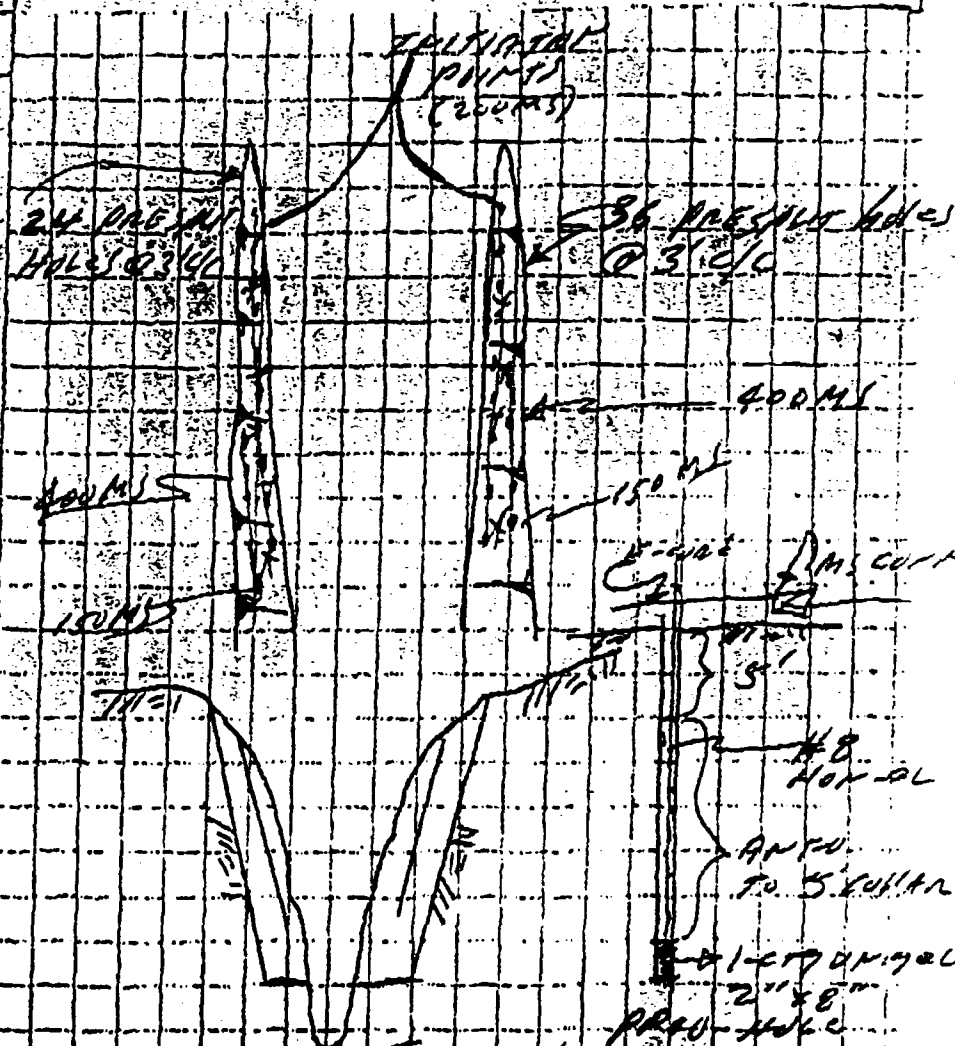 INITIATION
POINTS
(200 MS)
24 PRESPLIT
HOLES @ 3' C/C
36 PRESPLIT HOLES
@ 3' C/C
400 MS
400 MS
150 MS
150 MS
E-CORD
MS CONN
5'
#8
NON-EL
ANFO
TO 5' COLLAR
2" x 8"
PROD-HOLE